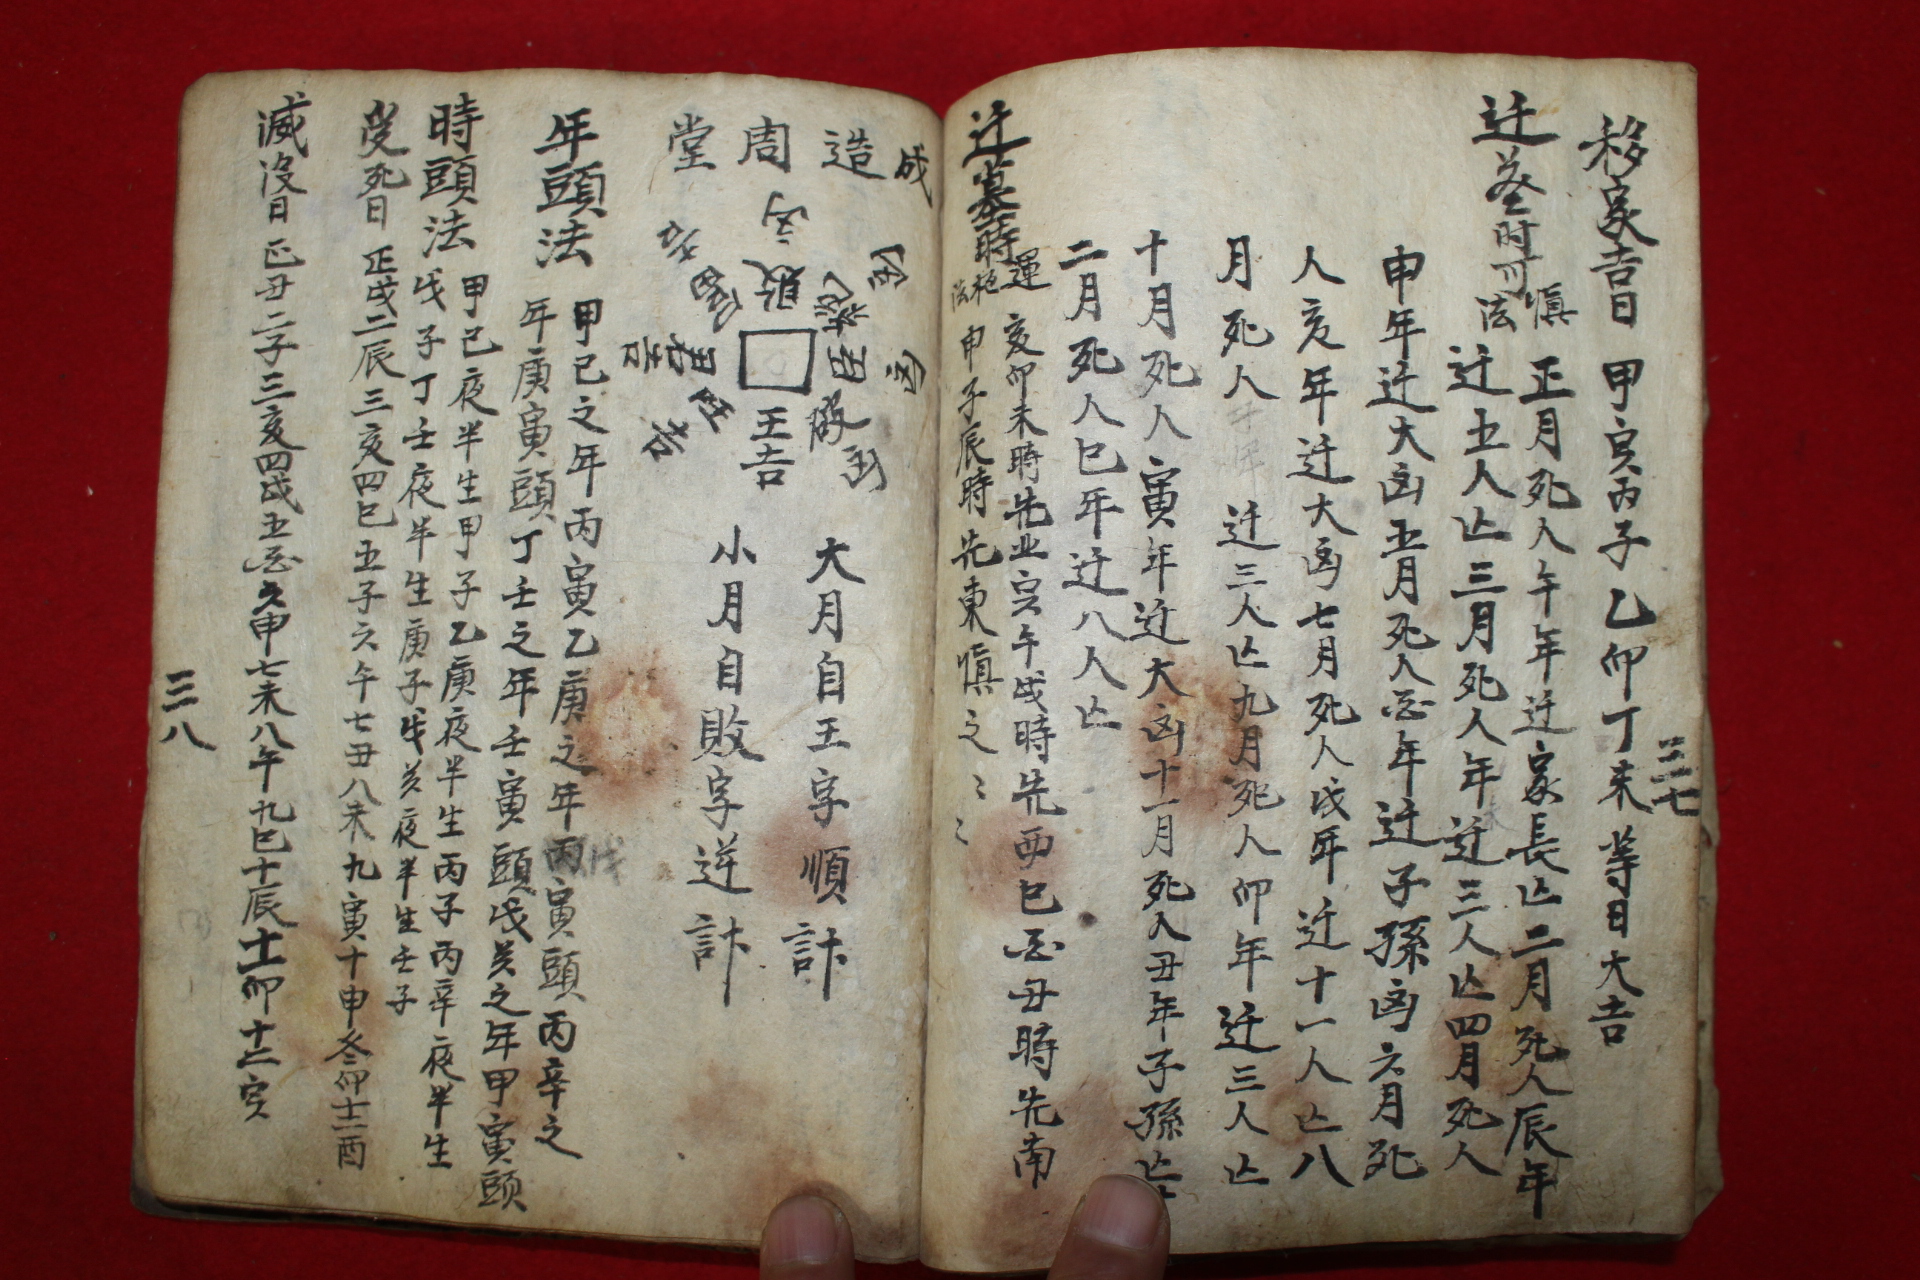 移家吉日 甲寅丙子乙卯丁未等日大吉
三七
迁 时 法 慎 正月死人午年迁家長亡二月死人辰年
迁五人亡三月死人 年迁三人亡四月死人
申年迁大凶五月死人 年迁子孫凶六月死
人亥年迁大凶七月死人戌年迁十一人亡八
月死人 迁三人亡九月死人卯年迁三人亡
十月死人寅年迁大凶十一月死人丑年子孫亡十
二月死人巳年迁八人亡
迁墓時運 法 亥卯未時先 寅午戌時先西巳 丑時先南
申子辰時先東慎之〻〻
成造周堂
敗
王吉
大月自王字順計
小月自敗字逆計
年頭法 甲己之年丙寅乙庚之年丙戊寅頭丙辛之
年庚寅頭丁壬之年壬寅頭戊癸之年甲寅頭
時頭法 甲己夜半生甲子乙庚夜半生丙子丙辛夜半生
戊子丁壬夜半生庚子戊癸夜半生壬子
受死日 正戌二辰三亥四巳五子六午七丑八未九寅十申 卯十二酉
滅沒日 正丑二子三亥四戌五酉六申七未八午九巳十辰十一卯十二寅
三八